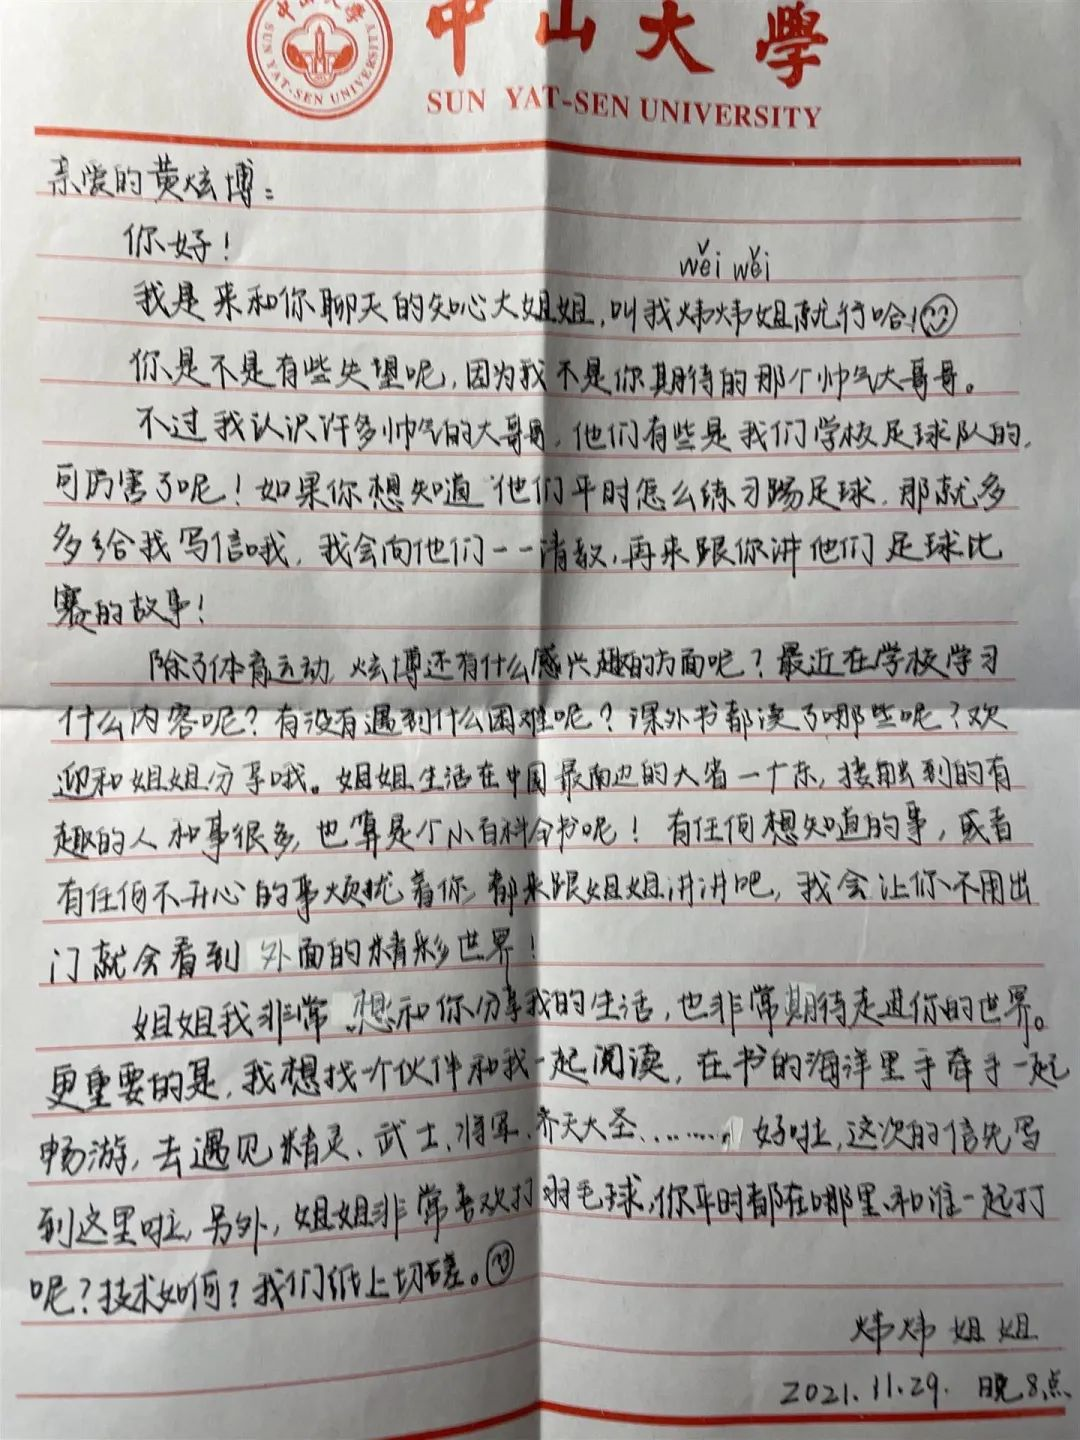 中山大學
SUN YAT-SEN UNIVERSITY
SUN YAT-SEN UNIVERSITY
亲爱的黄炫博：
你好！
wěi wěi
我是来和你聊天的知心大姐姐，叫我炜炜姐就行哈！
你是不是有些失望呢，因为我不是你期待的那个帅气大哥哥。
不过我认识许多帅气的大哥哥，他们有些是我们学校足球队的，
可厉害了呢！如果你想知道他们平时怎么练习踢足球，那就多
多给我写信哦，我会向他们一一请教，再来跟你讲他们足球比
赛的故事！
除了体育运动，炫博还有什么感兴趣的方面呢？最近在学校学习
什么内容呢？有没有遇到什么困难呢？课外书都读了哪些呢？欢
迎和姐姐分享哦。姐姐生活在中国最南边的大省一广东，接触到的有
趣的人和事很多，也算是个小百科全书呢！有任何想知道的事，或者
有任何不开心的事烦扰着你，都来跟姐姐讲讲吧，我会让你不用出
门就会看到外面的精彩世界！
姐姐我非常想和你分享我的生活，也非常期待走进你的世界。
更重要的是，我想找一个伙伴和我一起阅读，在书的海洋里手牵手一起
畅游，去遇见精灵、武士、将军、齐天大圣………，好啦，这次的信先写
到这里啦，另外，姐姐非常喜欢打羽毛球，你平时都在哪里、和谁一起打
呢？技术如何？我们纸上切磋。
炜炜姐姐
2021.11.29. 晚8点